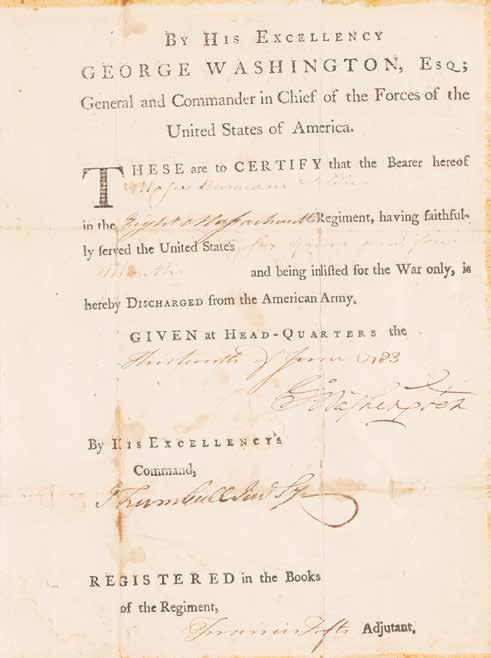 BY HIS EXCELLENCY
GEORGE WASHINGTON, ESQ;
General and Commander in Chief of the Forces of the
United States of America.
THESE are to CERTIFY that the Bearer hereof
Moses
in the Eight Massachusetts Regiment, having faithful-
ly served the United States six years and four
Months and being inlisted for the War only, is
hereby DISCHARGED from the American Army.
GIVEN at HEAD-QUARTERS the
of June 1783
GoWashington
By HIS EXCELLENCY's
Command,
JTrumbull Jun Sy
REGISTERED in the Books
of the Regiment,
Francis Tufts Adjutant,